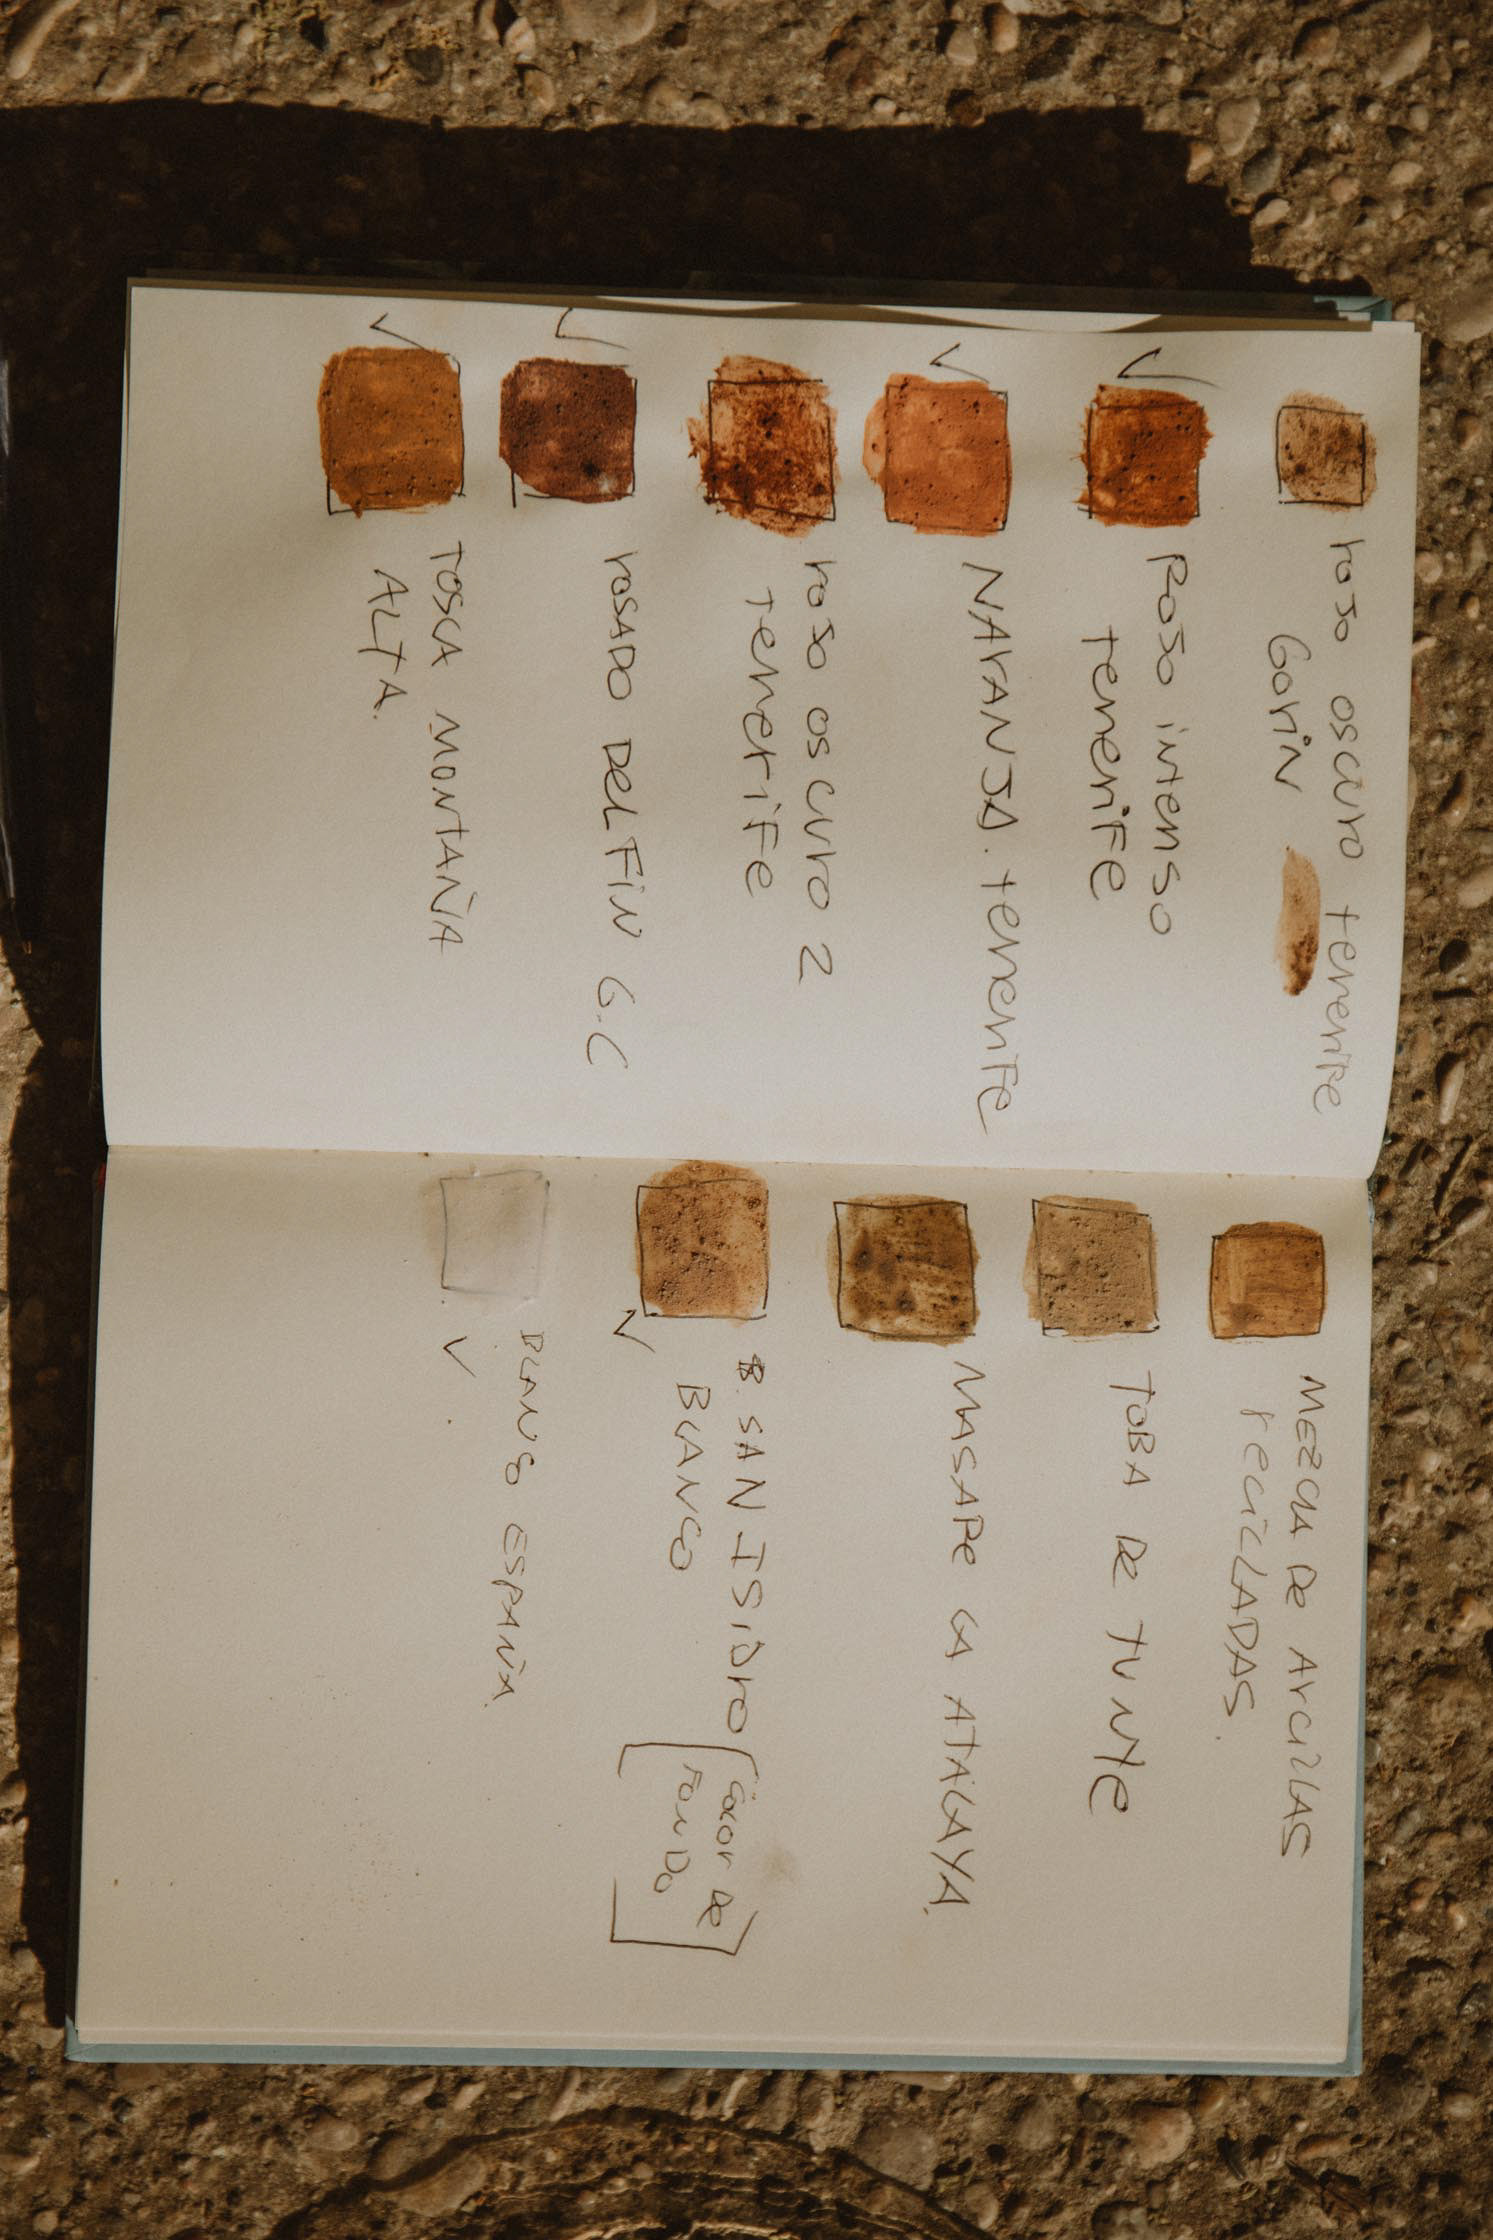 rojo oscuro tenerife
Gorin
Rojo intenso
tenerife
NArANJA. tenerife
rojo oscuro 2
tenerife
rosADO DelFiN G.C
TOSCA MONTAÑA
ALTA.
MEZCLA De ArCiLLAS
reciCLADAS.
TOBA De TUNTE
MASAPe LA ATALAYA.
B. SAN ISiDro
BLANCO
[color de
FONDO]
BLANCO ESPAÑA